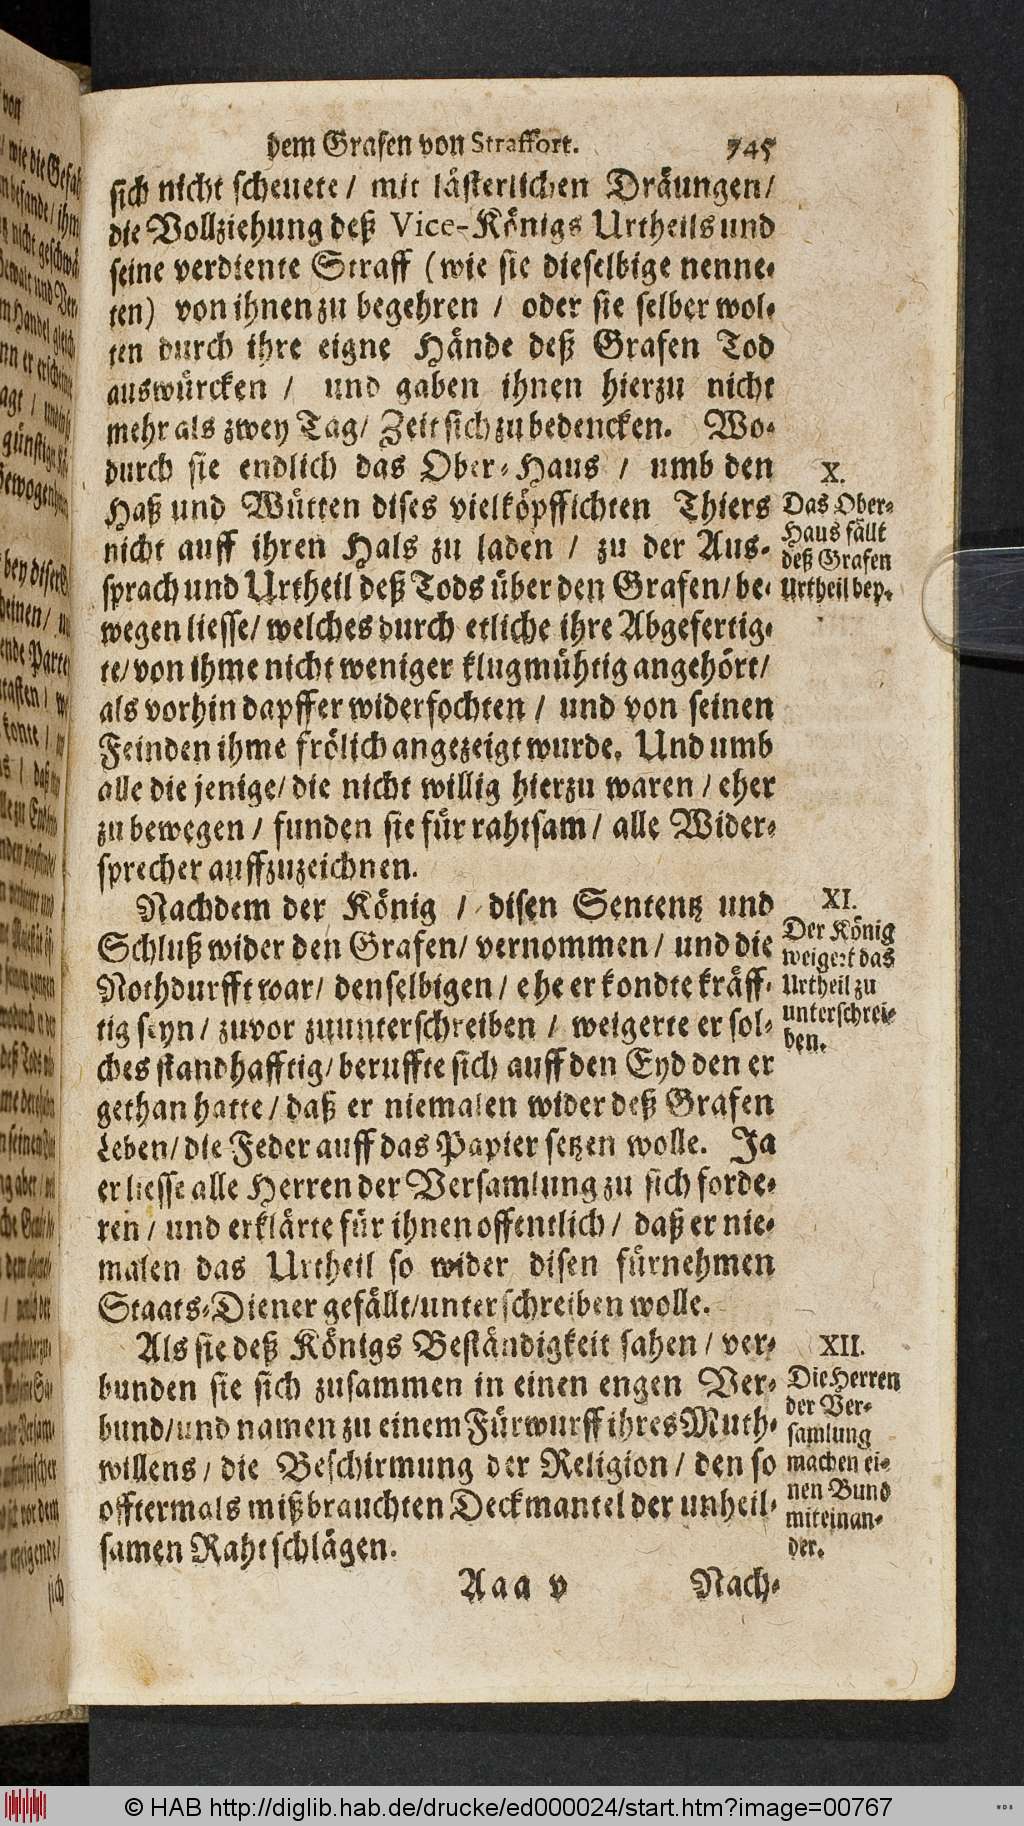 dem Grafen von Straffort. 745
sich nicht scheuete / mit lästerlichen Dräungen /
die Vollziehung deß Vice-Königs Urtheils und
seine verdiente Straff (wie sie dieselbige nenne-
ten) von ihnen zu begehren / oder sie selber wol-
ten durch ihre eigne Hände deß Grafen Tod
auswürcken / und gaben ihnen hierzu nicht
mehr als zwey Tag / Zeit sich zu bedencken. Wo-
durch sie endlich das Ober-Haus / umb den
Haß und Wütten dises vielköpffichten Thiers
nicht auff ihren Hals zu laden / zu der Aus-
sprach und Urtheil deß Tods über den Grafen / be-
wegen liesse / welches durch etliche ihre Abgefertig-
te / von ihme nicht weniger klugmühtig angehört /
als vorhin dapffer widerfochten / und von seinen
Feinden ihme frölich angezeigt wurde. Und umb
alle die jenige / die nicht willig hierzu waren / eher
zu bewegen / funden sie für rahtsam / alle Wider-
sprecher auffzuzeichnen.
X.
Das Ober-
Haus fällt
deß Grafen
Urtheil bey.
Nachdem der König / disen Sententz und
Schluß wider den Grafen / vernommen / und die
Nothdurfft war / denselbigen / ehe er kondte kräff-
tig seyn / zuvor zuunterschreiben / weigerte er sol-
ches standhafftig / beruffte sich auff den Eyd den er
gethan hatte / daß er niemalen wider deß Grafen
Leben / die Feder auff das Papier setzen wolle. Ja
er liesse alle Herren der Versamlung zu sich forde-
ren / und erklärte für ihnen offentlich / daß er nie-
malen das Urtheil so wider disen fürnehmen
Staats-Diener gefällt / unterschreiben wolle.
XI.
Der König
weigert das
Urtheil zu
unterschrei-
ben.
Als sie deß Königs Beständigkeit sahen / ver-
bunden sie sich zusammen in einen engen Ver-
bund / und namen zu einem Fürwurff ihres Muth-
willens / die Beschirmung der Religion / den so
offtermals mißbrauchten Deckmantel der unheil-
samen Rahtschlägen.
XII.
Die Herren
der Ver-
samlung
machen ei-
nen Bund
miteinan-
der.
Aaa v Nach-
© HAB http://diglib.hab.de/drucke/ed000024/start.htm?image=00767